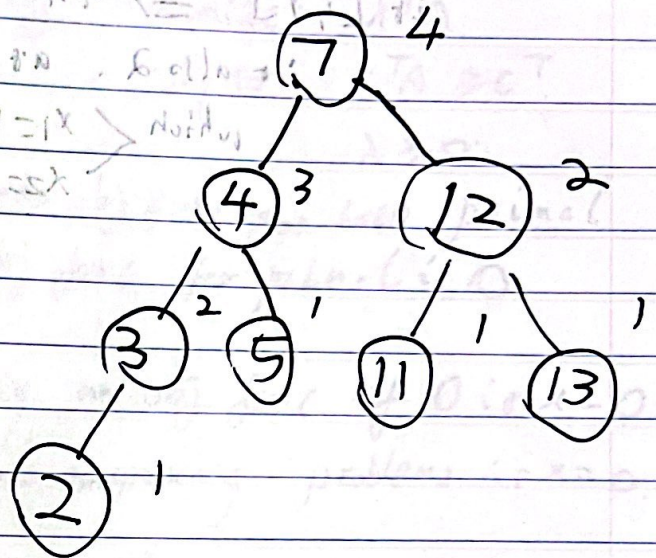 7 4
4 3 12 2
3 2 5 1 11 1 13 1
2 1